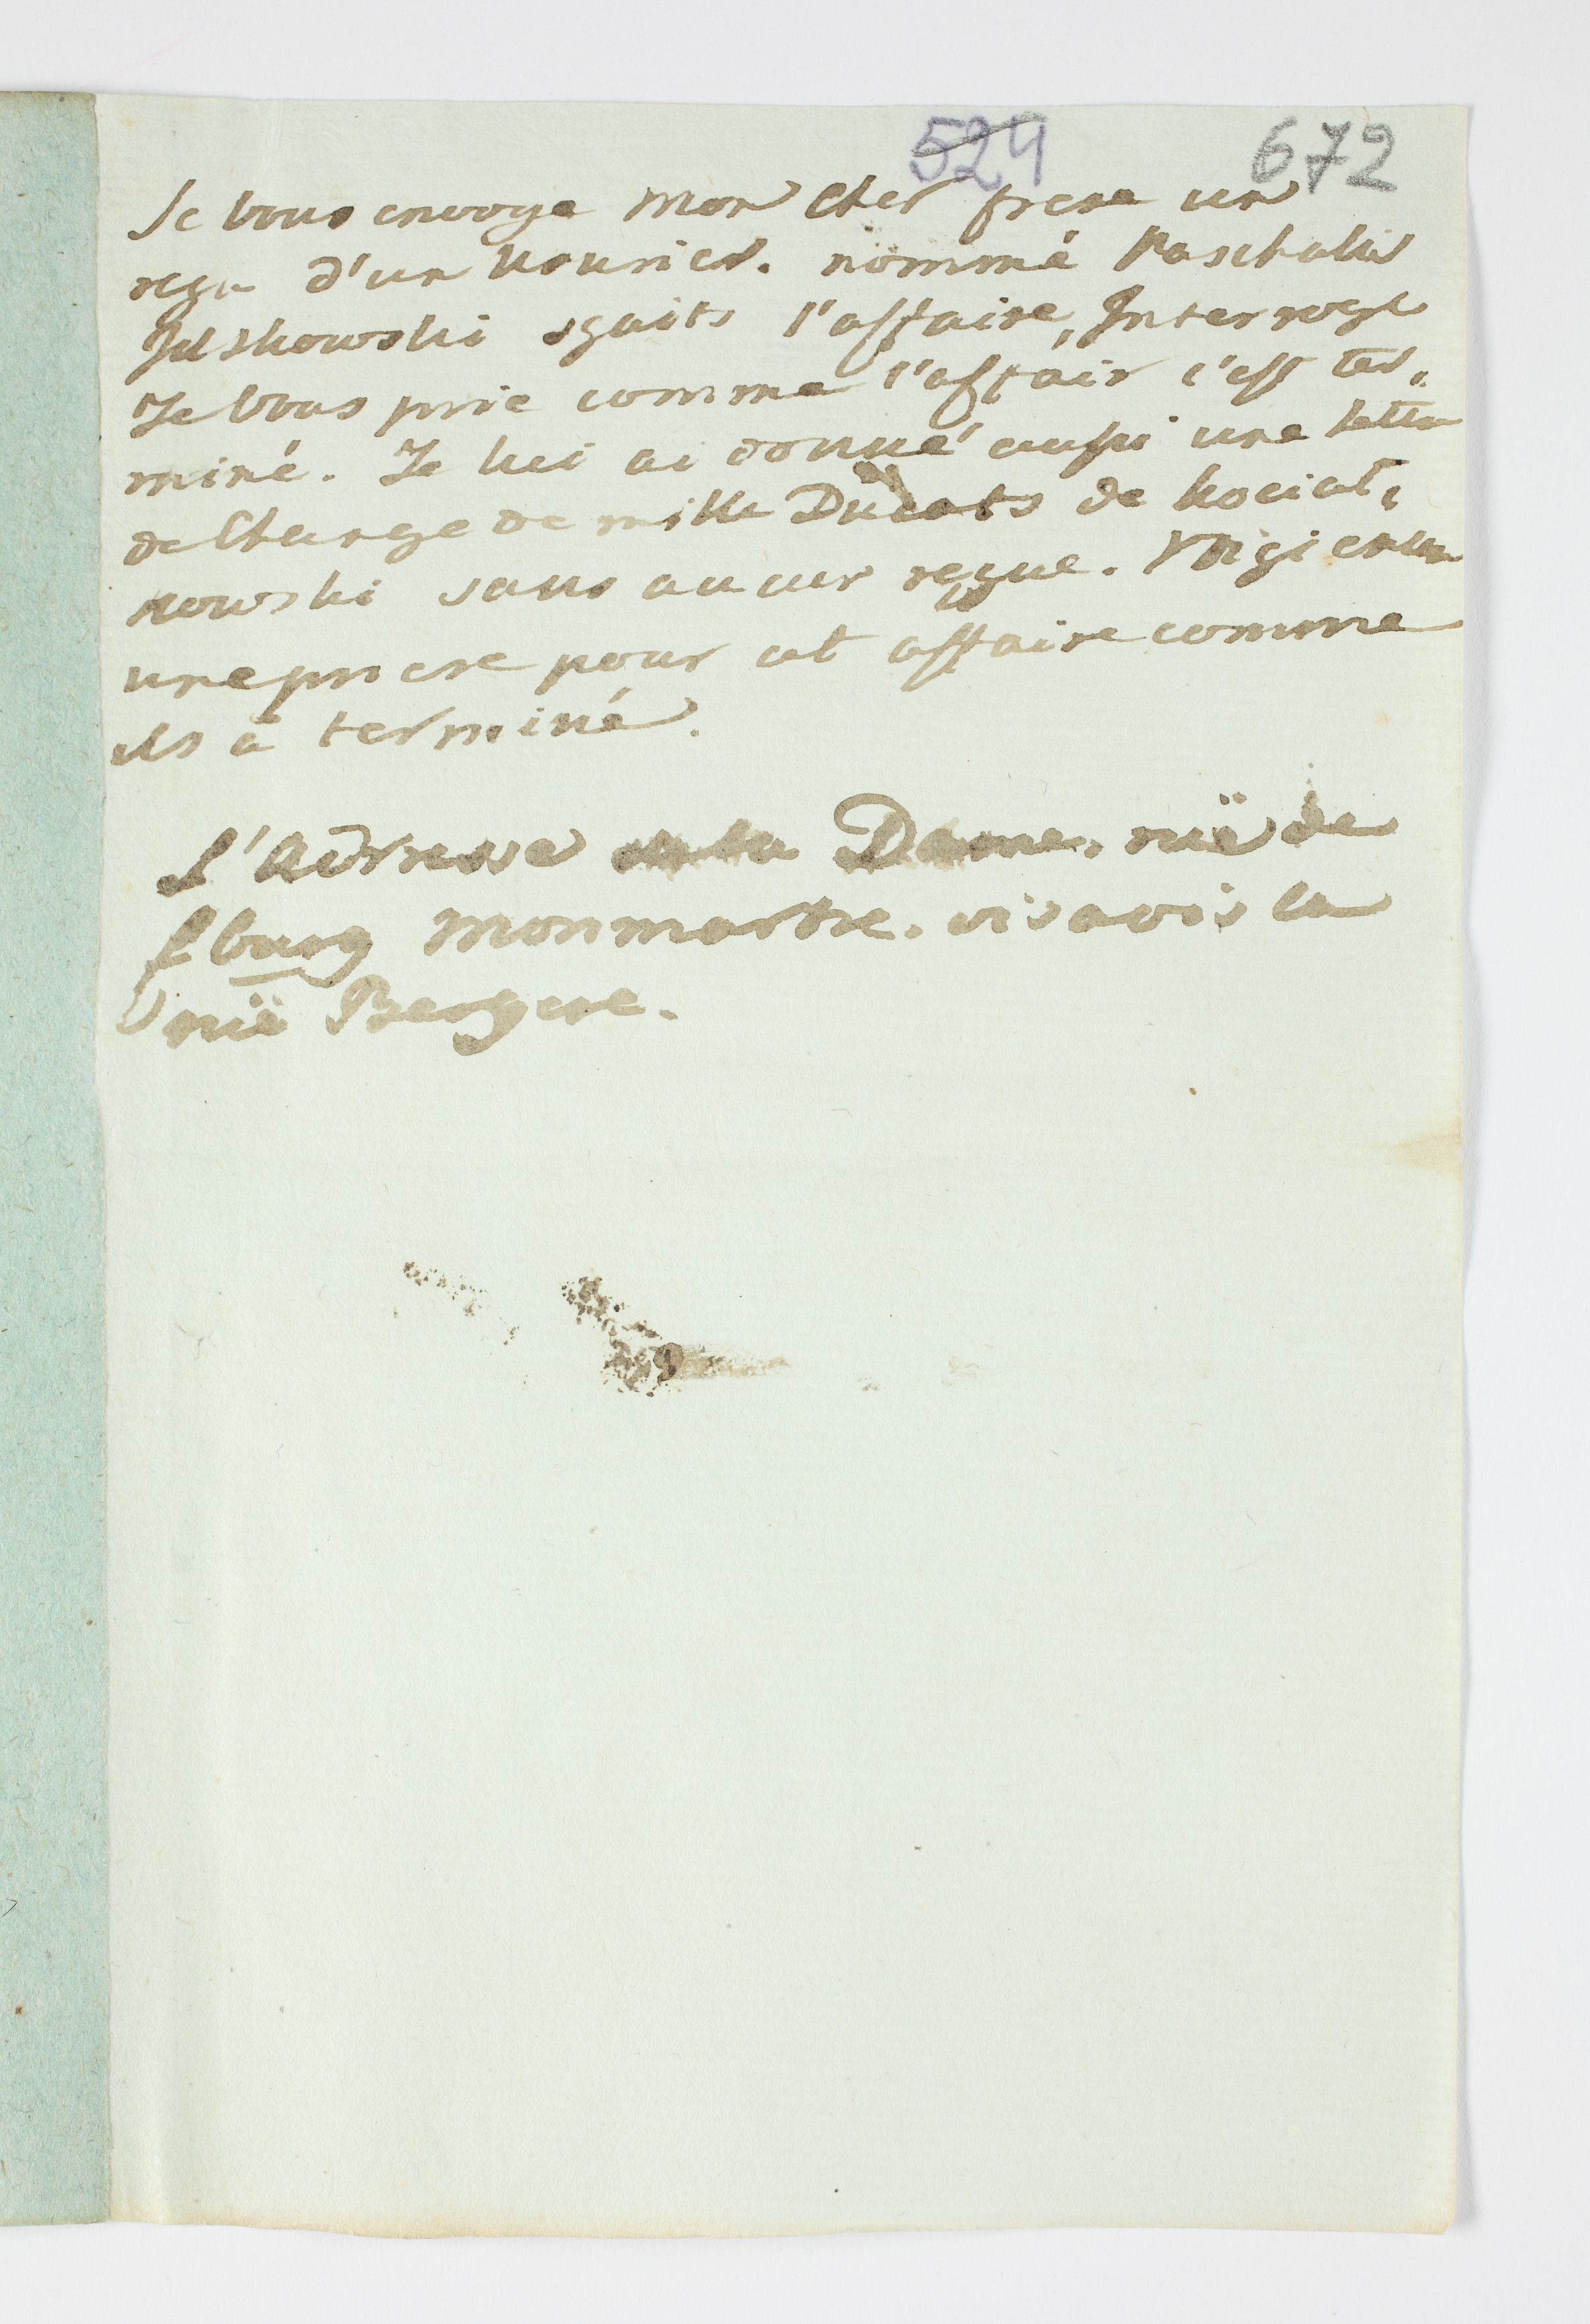 524 672
Je vous envoye mon cher frere un
reçu d'un Kourier. nommé Paschalis
Jutskowski sçaits l'affaire, Interroge
Je vous prie comme l'affair c'est ter,
miné. Je lui ai donné aussi une lettre
de Change de mille Ducats de Kociat,
kowski sans aucun reçue.
une pricre pour cet affaire comme
ils à terminé.
L'Adresse de la Dame. ruë de
fbourg Monmartre. vis a vis la
ruë Bergere.